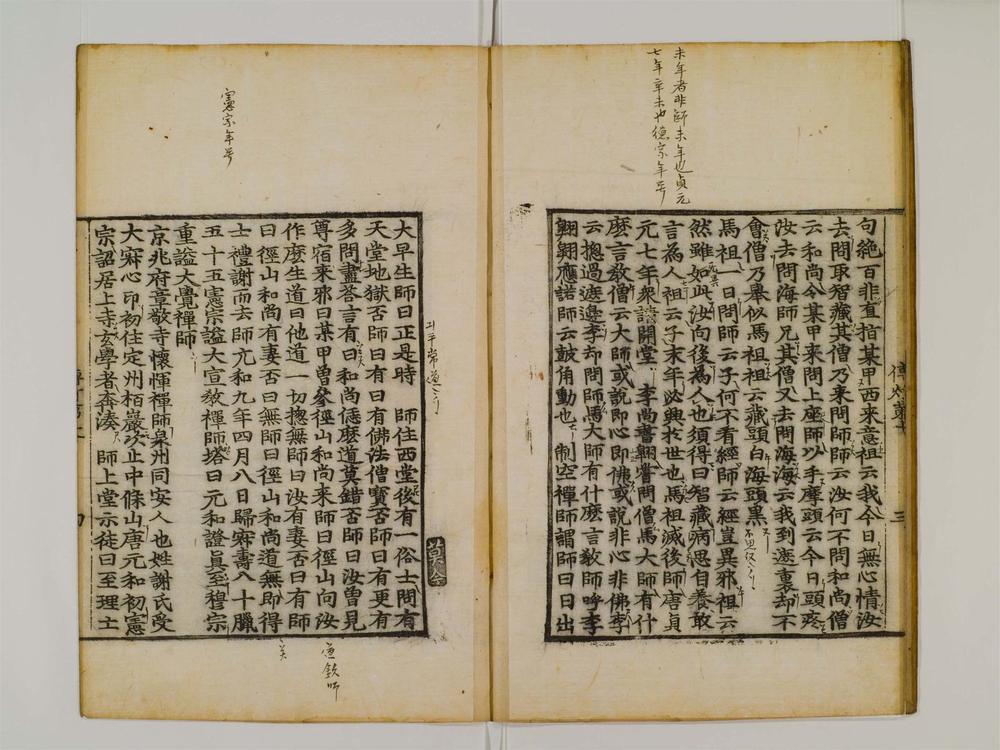 未年者非師未年也貞元
七年辛未也德宗年号
句絶百非直指某甲西來意祖云我今日無心情汝
去問取智藏其僧乃來問師師云汝何不問和尚僧
云和尚令某甲來問上座師以手摩頭云今日頭疼
汝去問海師兄其僧又去問海海云我到遮裏却不
會僧乃舉似馬祖祖云藏頭白海頭黑
馬祖一日問師云子何不看經師云經豈異邪祖云
然雖如此汝向後為人也須得曰智藏病思自養敢
言為人祖云子末年必興於世也馬祖滅後師唐貞
元七年衆請開堂 李尚書翱嘗問僧馬大師有什
麽言教僧云大師或說即心即佛或說非心非佛李
云摠過遮邊李却問師馬大師有什麽言教師呼李
翱翱應諾師云鼓角動也 制空禪師謂師曰日出
憲宗年号
大早生師曰正是時 師住西堂後有一俗士問有
天堂地獄否師曰有曰有佛法僧寶否師曰有更有
多問盡荅言有曰和尚恁麽道莫錯否師曰汝曾見
尊宿來邪曰某甲曾叅徑山和尚來師曰徑山向汝
作麽生道曰他道一切摠無師曰汝有妻否曰有師
曰徑山和尚有妻否曰無師曰徑山和尚道無即得
士禮謝而去師亢和九年四月八日歸寂壽八十臘
五十五憲宗謚大宣教禪師塔曰元和證真至穆宗
重謚大覺禪師
京兆府章敬寺懷惲禪師泉州同安人也姓謝氏受
大寂心印初住定州栢巖次止中條山唐元和初憲
宗詔居上寺玄學者奔湊 師上堂示徒曰至理士
道欽師